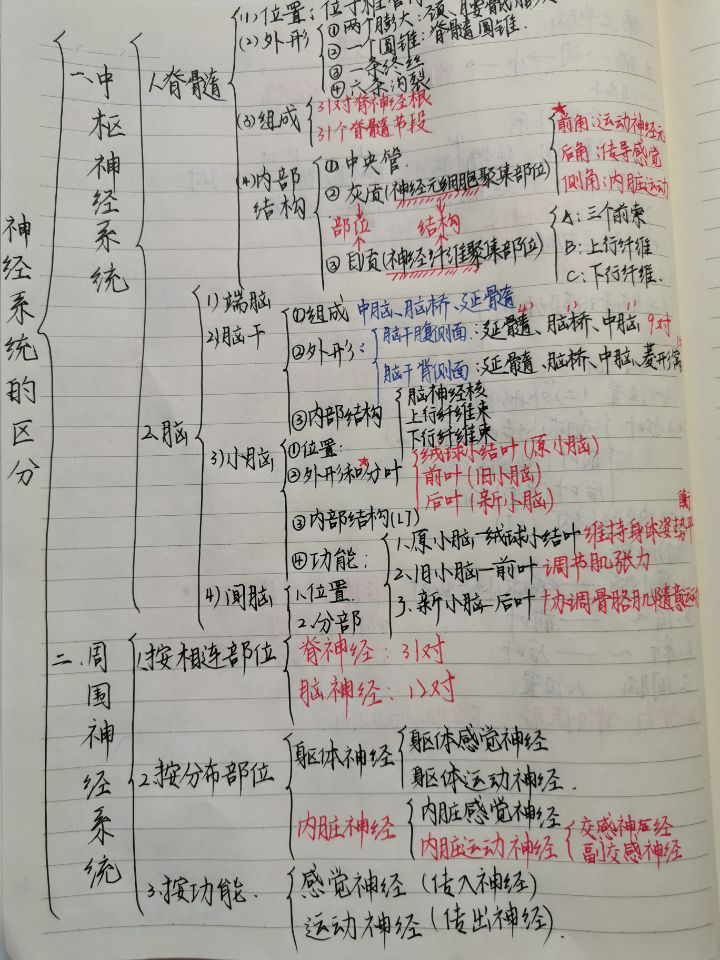 神经系统的区分
一、中枢神经系统
1.脊髓
(1)位置:位于椎管
(2)外形
①两个膨大:颈、腰骶膨大
②一个圆锥:脊髓圆锥.
③一条终丝
④六条沟裂
(3)组成
31对脊神经根
31个脊髓节段
(4)内部结构
①中央管.
②灰质(神经元细胞聚集部位)
部位 结构
③白质(神经纤维聚集部位)
★前角:运动神经元
后角:传导感觉
侧角:内脏运动
A:三个前束
B:上行纤维
C:下行纤维.
2.脑
1)端脑
2)脑干
①组成 中脑、脑桥、延骨髓
②外形:
脑干腹侧面:延骨髓、脑桥、中脑 9对
脑干背侧面:延骨髓、脑桥、中脑、菱形窝
③内部结构
脑神经核
上行纤维束
下行纤维束
3)小脑
①位置:
②外形和分叶★
绒球小结叶(原小脑)
前叶(旧小脑)
后叶(新小脑)
③内部结构(17)
④功能:
1.原小脑—绒球小结叶 维持身体姿势平衡
2.旧小脑—前叶 调节肌张力
3.新小脑—后叶 协调骨骼肌随意运动
4)间脑
1.位置.
2.分部
二.周围神经系统
1.按相连部位
脊神经:31对
脑神经:12对
2.按分布部位
躯体神经
躯体感觉神经
躯体运动神经.
内脏神经
内脏感觉神经
内脏运动神经
交感神经
副交感神经
3.按功能.
感觉神经(传入神经)
运动神经(传出神经).